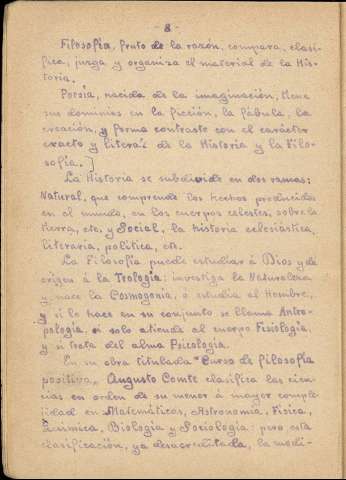 - 8 -
Filosofía, fruto de la razón, compara, clasi-
fica, juzga y organiza el material de la His-
toria.
Poesía, nacida de la imaginación, tiene
sus dominios en la ficción, la fábula, la
creación, y forma contraste con el carácter
exacto y literal de la Historia y la Filo-
sofía.]
La Historia se subdivide en dos ramas:
Natural, que comprende los hechos producidos
en el mundo, en los cuerpos celestes, sobre la
tierra, etc, y Social, la historia eclesiástica,
literaria, política, etc.
La Filosofía puede estudiar á Dios y da
origen á la Teología: investiga la Naturaleza
y nace la Cosmogonía, ó estudia al Hombre,
y si lo hace en su conjunto se llama Antro-
pología, si solo atiende al cuerpo Fisiología,
y si trata del alma Psicología.
En su obra titulada "Curso de filosofía
positiva", Augusto Comte clasifica las cien-
cias en orden de su menor á mayor comple-
jidad en Matemáticas, Astronomía, Física,
Química, Biología y Sociología: pero esta
clasificación, ya desacreditada, la modi-